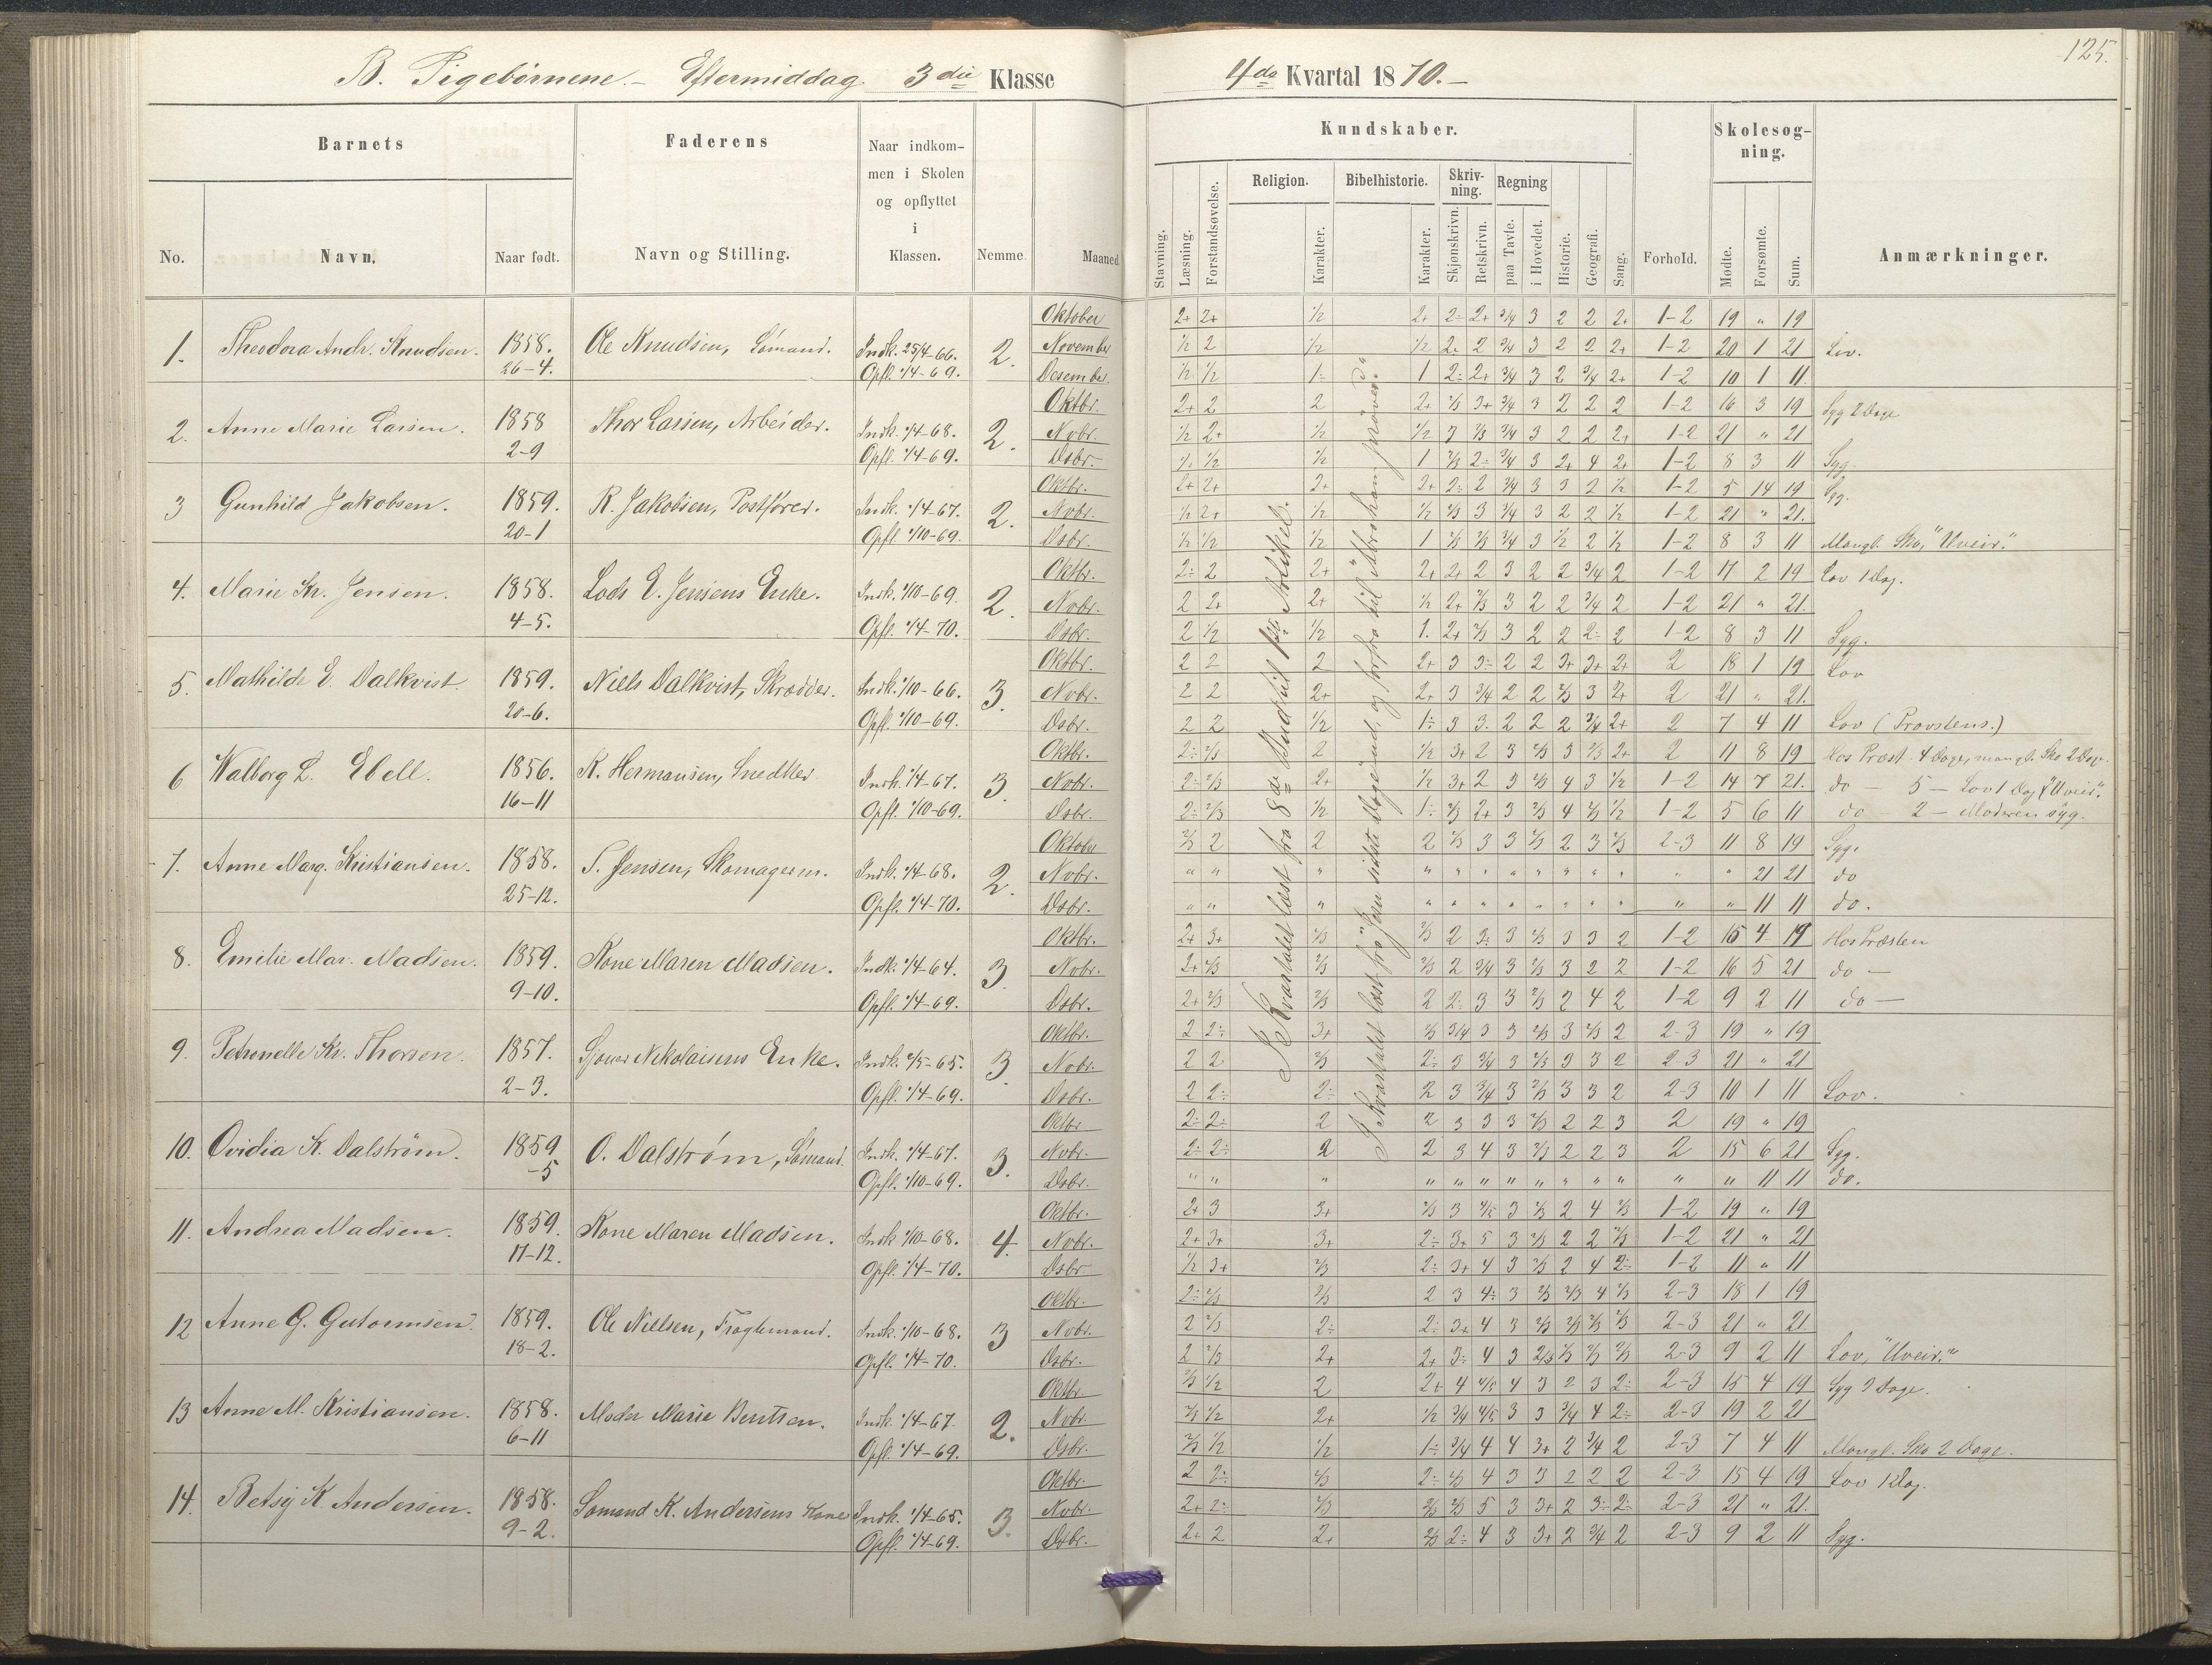 125.
B. Pigebørnene. – Eftermiddag. 3die Klasse
4de Kvartal 1870. –
Barnets
Faderens
Naar indkom-
men i Skolen
og opflyttet
i
Klassen.
No.
Navn.
Naar født.
Navn og Stilling.
Nemme.
Maaned
Kundskaber.
Skolesøg-
ning.
Religion.
Bibelhistorie.
Skriv-
ning.
Regning
Stavning.
Læsning.
Forstandsøvelse.
Karakter.
Karakter.
Skjønskrivn.
Retskrivn.
paa Tavle.
i Hovedet.
Historie.
Geografi.
Sang.
Forhold.
Mødte.
Forsømte.
Sum.
Anmærkninger.
1. Theodora Andr. Knudsen. 1858. 26-4. Ole Knudsen, Sømand. Indk. 25/4-66. Opfl. 1/4-69. 2.
Oktober 2+ 2+ 1/2 2+ 2÷ 2+ 3/4 3 2 2 2+ 1-2 19 " 19
November 1/2 2 1/2 1/2 2+ 2 3/4 3 2 2 2+ 1-2 20 1 21 Lov.
Desember 1/2 1/2 1÷ 1 2÷ 2+ 3/4 3 2 3/4 2+ 1-2 10 1 11
2. Anne Marie Larsen. 1858 2-9 Thor Larsen, Arbeider. Indk. 1/4-68. Opfl. 1/4-69. 2.
Oktbr. 2+ 2 2 2+ 2/3 3+ 3/4 3 2 2 2 1-2 16 3 19 Syg 2 Dage
Novbr. 1/2 2+ 1/2 1/2 3 2/3 3/4 3 2 2 2+ 1-2 21 " 21
Dsbr. 1/2 1/2 1/2 1 2/3 2÷ 3/4 3 2+ 4 2+ 1-2 8 3 11 Syg.
3 Gunhild Jakobsen. 1859. 20-1 R. Jakobsen, Postfører. Indk. 1/4-67. Opfl. 1/10-69. 2.
Oktbr. 2+ 2+ 2+ 2+ 2÷ 2 3/4 3 3 2 1/2 1-2 5 14 19 Syg.
Novbr. 1/2 2+ 1/2 1/2 2/3 3 3/4 3 2 2 1/2 1-2 21 " 21.
Dsbr. 1/2 1/2 1/2 1 2/3 2/3 3/4 3 1/2 2 1/2 1-2 8 3 11 Mangl. Sko, "Uveir."
4. Marie Kr. Jensen. 1858. 4-5. Lods E. Jensens Enke. Indk. 1/10-69. Opfl. 1/4-70. 2.
Oktbr. 2÷ 2 2+ 2+ 2+ 2 3 2 2 3/4 2 1-2 17 2 19 Lov 1 Dag.
Novbr. 2 2+ 2+ 1/2 2+ 2/3 3 2 2 3/4 2 1-2 21 " 21.
Dsbr. 2 1/2 1/2 1. 2+ 2/3 3 2 2 2÷ 2 1-2 8 3 11 Syg.
5. Mathilde E. Dalkvist. 1859. 20-6. Niels Dalkvist, Skrædder. Indk. 1/10-66. Opfl. 1/10-69. 3.
Oktbr. 2 2 2 2+ 3 3÷ 2 2 3+ 3+ 2+ 2 18 1 19 Lov
Novbr. 2 2 2+ 2+ 3 3/4 2 2 2/3 3 2+ 2 21 " 21.
Dsbr. 2 2 1/2 1÷ 3 3. 2 2 2 3/4 2+ 2 7 4 11 Lov (Provstens.)
6 Walborg L. Ebell. 1856. 16-11 K. Hermansen, Snedker Indk. 1/4-67. Opfl. 1/10-69. 3.
Oktbr. 2÷ 2/3 2 1/2 3+ 2 3 2/3 3 2/3 2+ 2 11 8 19 Hos Præst. 4 Dage, mangl. Sko 2 Dage.
Novbr. 2÷ 2/3 2+ 1/2 3+ 2 3 2/3 4 3 1/2 1-2 14 7 21. do – 5 – Lov 1 Dag, "Uveir."
Dsbr. 2÷ 2/3 1/2 1÷ 2/3 2+ 3 2/3 4 2/3 1/2 1-2 5 6 11 do – 2 – Moderen syg.
7. Anne Marg. Kristiansen. 1858. 25-12. S. Jensen, Skomagerm. Indk. 1/4-68. Opfl. 1/4-70. 2.
Oktober 2/3 2 2 2 2/3 3 3 2/3 2 3 2/3 2-3 11 8 19 Syg.
Novbr. " " " " " " " " " " " " " 21 21 do
Dsbr. " " " " " " " " " " " " " 11 11 do.
8. Emilie Mar. Madsen. 1859. 9-10. Kone Maren Madsen. Indk. 1/4-64. Opfl. 1/4-69. 3
Oktbr. 2+ 3+ 2/3 2/3 2 3÷ 3 2/3 3 3 2 1-2 15 4 19 Hos Præsten
Novbr. 2+ 2/3 2/3 2/3 2 3/4 3 2/3 3 2 2 1-2 16 5 21 do –
Dsbr. 2+ 2/3 2/3 2 2÷ 3 3 2/3 2 4 2 1-2 9 2 11 do –
9. Petronelle Kr. Thorsen. 1857. 2-3. Nikolaisens Enke. Indk. 2/5-65. Opfl. 1/4-69. 3
Oktbr. 2 2÷ 3+ 2/3 3/4 3 3 2/3 3 2/3 2 2-3 19 " 19
Novbr. 2 2 2/3 2÷ 3 3/4 3 2/3 3 3 2 2-3 21 " 21
Dsbr. 2 2÷ 2÷ 2 3 3/4 3 2/3 3 3 2 2-3 10 1 11 Lov.
10. Ovidia K. Dalstrøm. 1859 -5 O. Dalstrøm, Sømand. Indk. 1/4-67. Opfl. 1/10-69. 3.
Oktbr 2÷ 2÷ 2 2 3 3 3 2/3 2 2 3 2 19 " 19
Novbr. 2÷ 2÷ 2 2 3 4 3 2/3 2 2 3 2 15 6 21 Syg.
Dsbr. " " " " " " " " " " " " " 11 11 do.
11. Andrea Madsen. 1859. 17-12. Kone Maren Madsen. Indk. 1/10-68. Opfl. 1/4-70. 4.
Oktbr. 2+ 3 3+ 2/3 3 4/5 3 2/3 2 4 2/3 1-2 19 " 19
Novbr. 2+ 3+ 3+ 2÷ 3+ 5 3 2/3 2 2 2/3 1-2 21 " 21
Dsbr 1/2 3+ 2/3 2÷ 3+ 4 3 2/3 2 4 2÷ 1-2 11 " 11
12 Anne G. Gutormsen. 1859. 18-2. Ole Nielsen, Fragtemand. Indk. 1/10-68. Opfl. 1/4-70. 3
Oktbr. 2÷ 2/3 2/3 2 3 4÷ 3 2/3 2/3 4 2/3 2-3 18 1 19
Novbr. 2 2/3 2÷ 2÷ 3+ 4 3 2/3 2/3 2/3 2/3 2-3 21 " 21
Dsbr. 2 2/3 2+ 2+ 3÷ 4 3 2/3 2/3 2/3 2/3 2-3 9 2 11 Lov, "Uveir."
13 Anne M. Kristiansen. 1858. 6-11 Moder Marie Bentsen. Indk. 1/4-67. Opfl. 1/4-69. 2.
Oktbr 2/3 1/2 2 2+ 4 4/5 4 3 2 3 2÷ 2-3 15 4 19 Syg 2 Dage.
Novbr. 2/3 1/2 2+ 1/2 3/4 4/5 3 3 3/4 4 2÷ 2-3 19 2 21
Dsbr. 2/3 1/2 1/2 1÷ 3/4 4 4 3+ 2 3/4 2 2-3 7 4 11 Mangl. Sko 2 Dage.
14. Betsy K. Andersen. 1858. 9-2. Sømand K. Andersens Kone Indk. 1/4-65. Opfl. 1/4-69. 3.
Oktbr. 2 2÷ 2/3 2÷ 2/3 4 3 3 2 2 2 2-3 15 4 19 Lov 1 Dag.
Novbr. 2+ 2÷ 2/3 2/3 2/3 5 3 3+ 2 3÷ 2÷ 2-3 21 " 21.
Dsbr. 2+ 2 2+ 2/3 2÷ 4 3 3+ 2 3/4 2 2-3 9 2 11 Syg.
I Kvartalet læst fra 8de Bud til 1ste Artikel.
I Kvartalet læst fra "Jesu sidste og forfra til "Abraham prøves." do